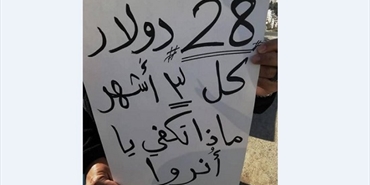 #28# دولار
كل ٣ أشهر
ماذا تكفي يا
أنروا